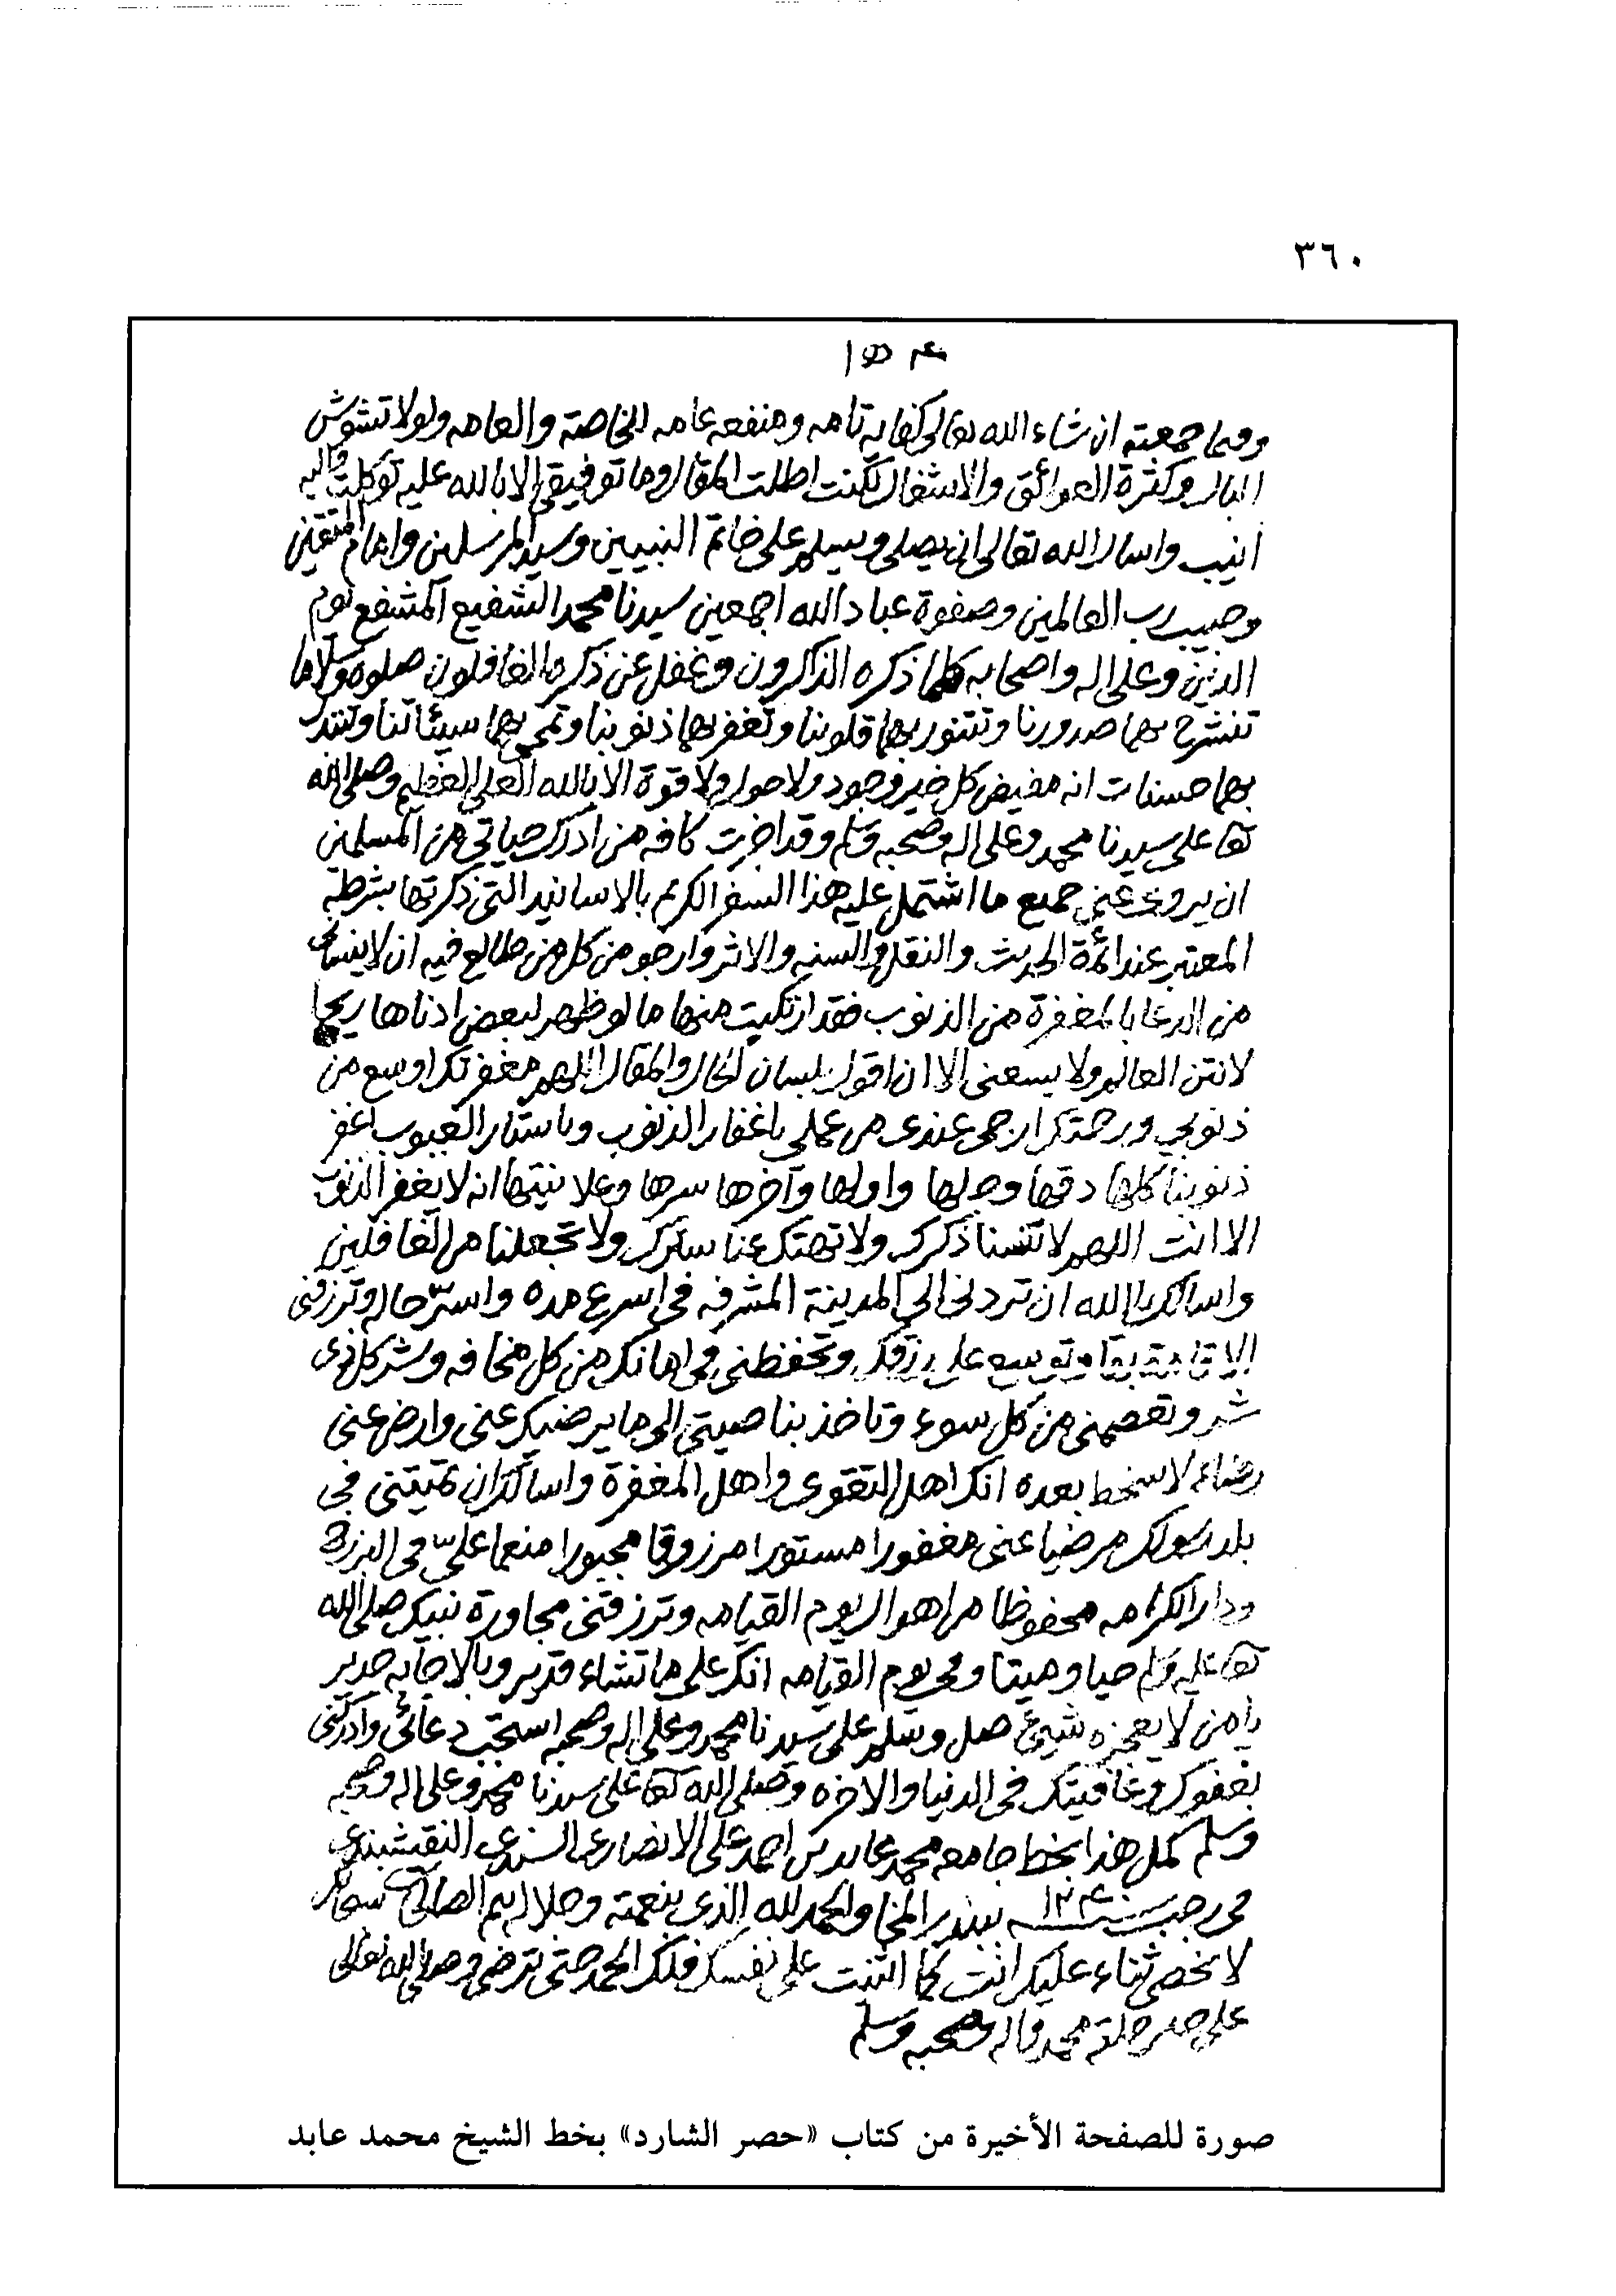 ٣٦٠
وفيما جمعته ان شاء الله تعالى كفايه تامه ومنفعه عامه للخاصة والعامه ولولا تشوش
البال وكثرة العوائق والاشغال لكنت اطلت المقال وما توفيقي الا بالله عليه توكلت واليه
انيب واسال الله تعالى ان يصلى ويسلم على خاتم النبيين وسيد المرسلين وامام المتقين
وحبيب رب العالمين وصفوة عباد الله اجمعين سيدنا محمد الشفيع المشفع يوم
الدين وعلى اله واصحابه كلما ذكره الذاكرون وغفل عن ذكره الغافلون صلوة وسلاما
تنشرح بهما صدورنا وتتنور بهما قلوبنا وتغفر بهما ذنوبنا وتمحى بهما سيئاتنا وتبدل
بهما حسنات انه مفيض كل خير وجود ولا حول ولا قوة الا بالله العلي العظيم وصلى الله
تعا على سيدنا محمد وعلى اله وصحبه وسلم وقد اجزت كافه من ادرك حياتي من المسلمين
ان يروي عني جميع ما اشتمل عليه هذا السفر الكريم بالاسانيد التي ذكرتها بشرطه
المعتبر عند ائمة الحديث والنقل والسنه والاثر وارجو من كل من طالع فيه ان لا ينساني
من الدعا بالمغفرة من الذنوب فقد ارتكبت منها ما لو ظهر لبعض ادناها ريحا
لانتن العالم ولا يسعنى الا ان اقول بلسان الحال والمقال اللهم مغفرتك اوسع من
ذنوبي ورحمتك ارجى عندى من عملي يا غفار الذنوب ويا ستار العيوب اغفر
ذنوبنا كلها دقها وجلها واولها وآخرها سرها وعلانيتها انه لا يغفر الذنوب
الا انت اللهم لا تنسنا ذكرك ولا تهتك عنا سترك ولا تجعلنا من الغافلين
واسالك يا الله ان تردني الى المدينة المشرفه في اسرع مده واسرّ حال وترزقنى
الاقامة بها وتوسع علي رزقك وتحفظني في امانك من كل مخافه وشر كل ذى
شر وتعصمنى من كل سوء وتاخذ بناصيتي الى ما يرضيك عنى وارض عنى
رضاء لا سخط بعده انك اهل التقوى واهل المغفرة واسالك ان تميتنى في
بلد رسولك مرضيا عنى مغفورا مستورا مرزوقا مجبورا منعما علىّ في البرزخ
ودار الكرامه محفوظا من اهوال يوم القيامه وترزقنى مجاورة نبيك صلى الله
تعا عليه وسلم حيا وميتا وفي يوم القيامه انك على ما تشاء قدير وبالاجابه جدير
يا من لا يعجزه شيئ صل وسلم على سيدنا محمد وعلى اله وصحبه استجب دعائى وادركنى
بعفوك وعافيتك في الدنيا والاخره وصلى الله تعا على سيدنا محمد وعلى اله وصحبه
وسلم كمل هذا بخط جامعه محمد عابد بن احمد على الانصارى السندى النقشبندى
في رجب سنه ١٢٤٠ ببندر المخا والحمد لله الذي بنعمته وجلاله تتم الصالحات سبحانك
لا نحصى ثناء عليك انت كما اثنيت على نفسك فلك الحمد حتى ترضى وصلى الله تعالى
على خير خلقه محمد واله وصحبه وسلم
صورة للصفحة الأخيرة من كتاب «حصر الشارد» بخط الشيخ محمد عابد